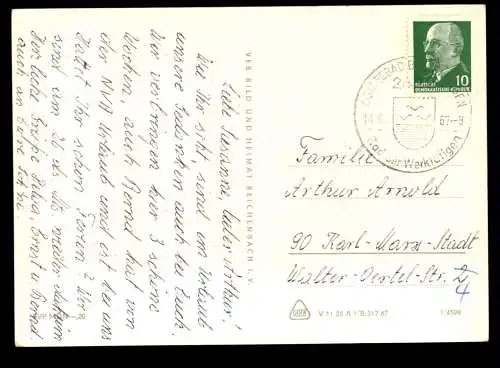 Liebe Susanne, lieber Arthur!
Wie Ihr seht, sind im Urlaub
unsere Gedanken auch bei Euch.
Wir verbringen hier 3 schöne
Wochen, auch Bernd hat von
der NVA Urlaub und ist bei uns
Hattet Ihr schon Ferien? Wir
sind am 26. d. M. wieder daheim
Herzliche Grüße Eure Ernst u. Bernd.
auch an Eure
VEB BILD UND HEIMAT REICHENBACH I. V.
DEUTSCHE
DEMOKRATISCHE REPUBLIK
10
OSTSEEBAD
67-9
Bad der Werktätigen
Familie
Arthur Arnold
90 Karl-Marx-Stadt
Walter-Oertel-Str. 2
4
V 11 28 A 1 B 317 67
1/4599